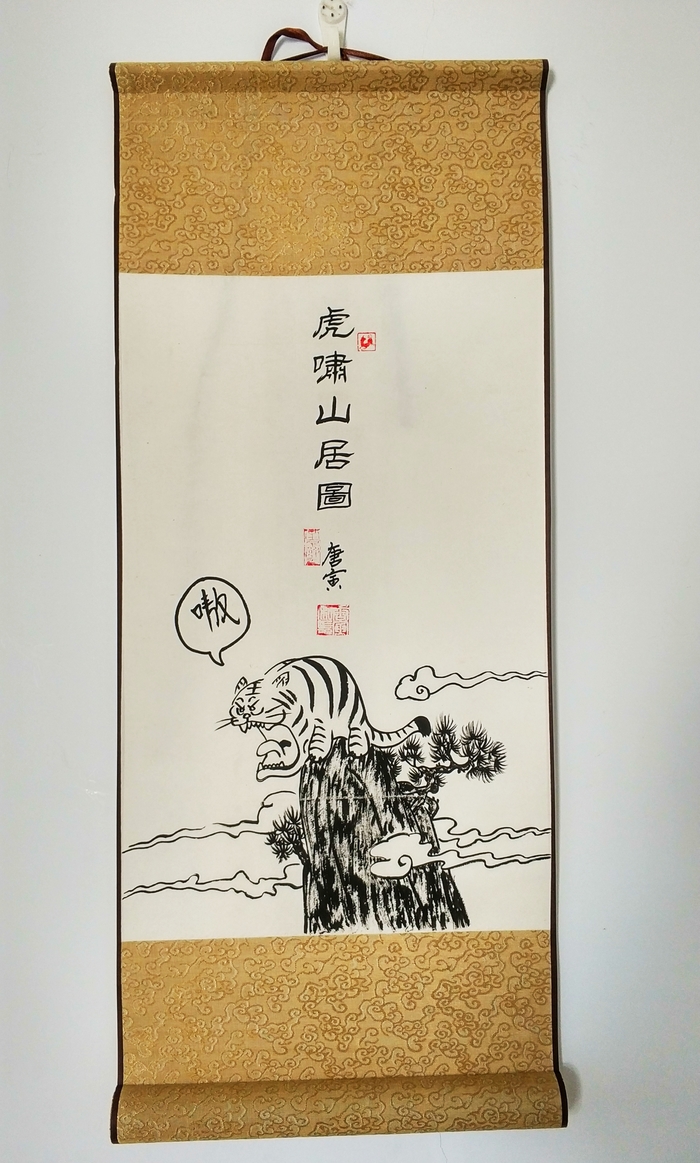 虎嘯山居圖
唐寅
嗷